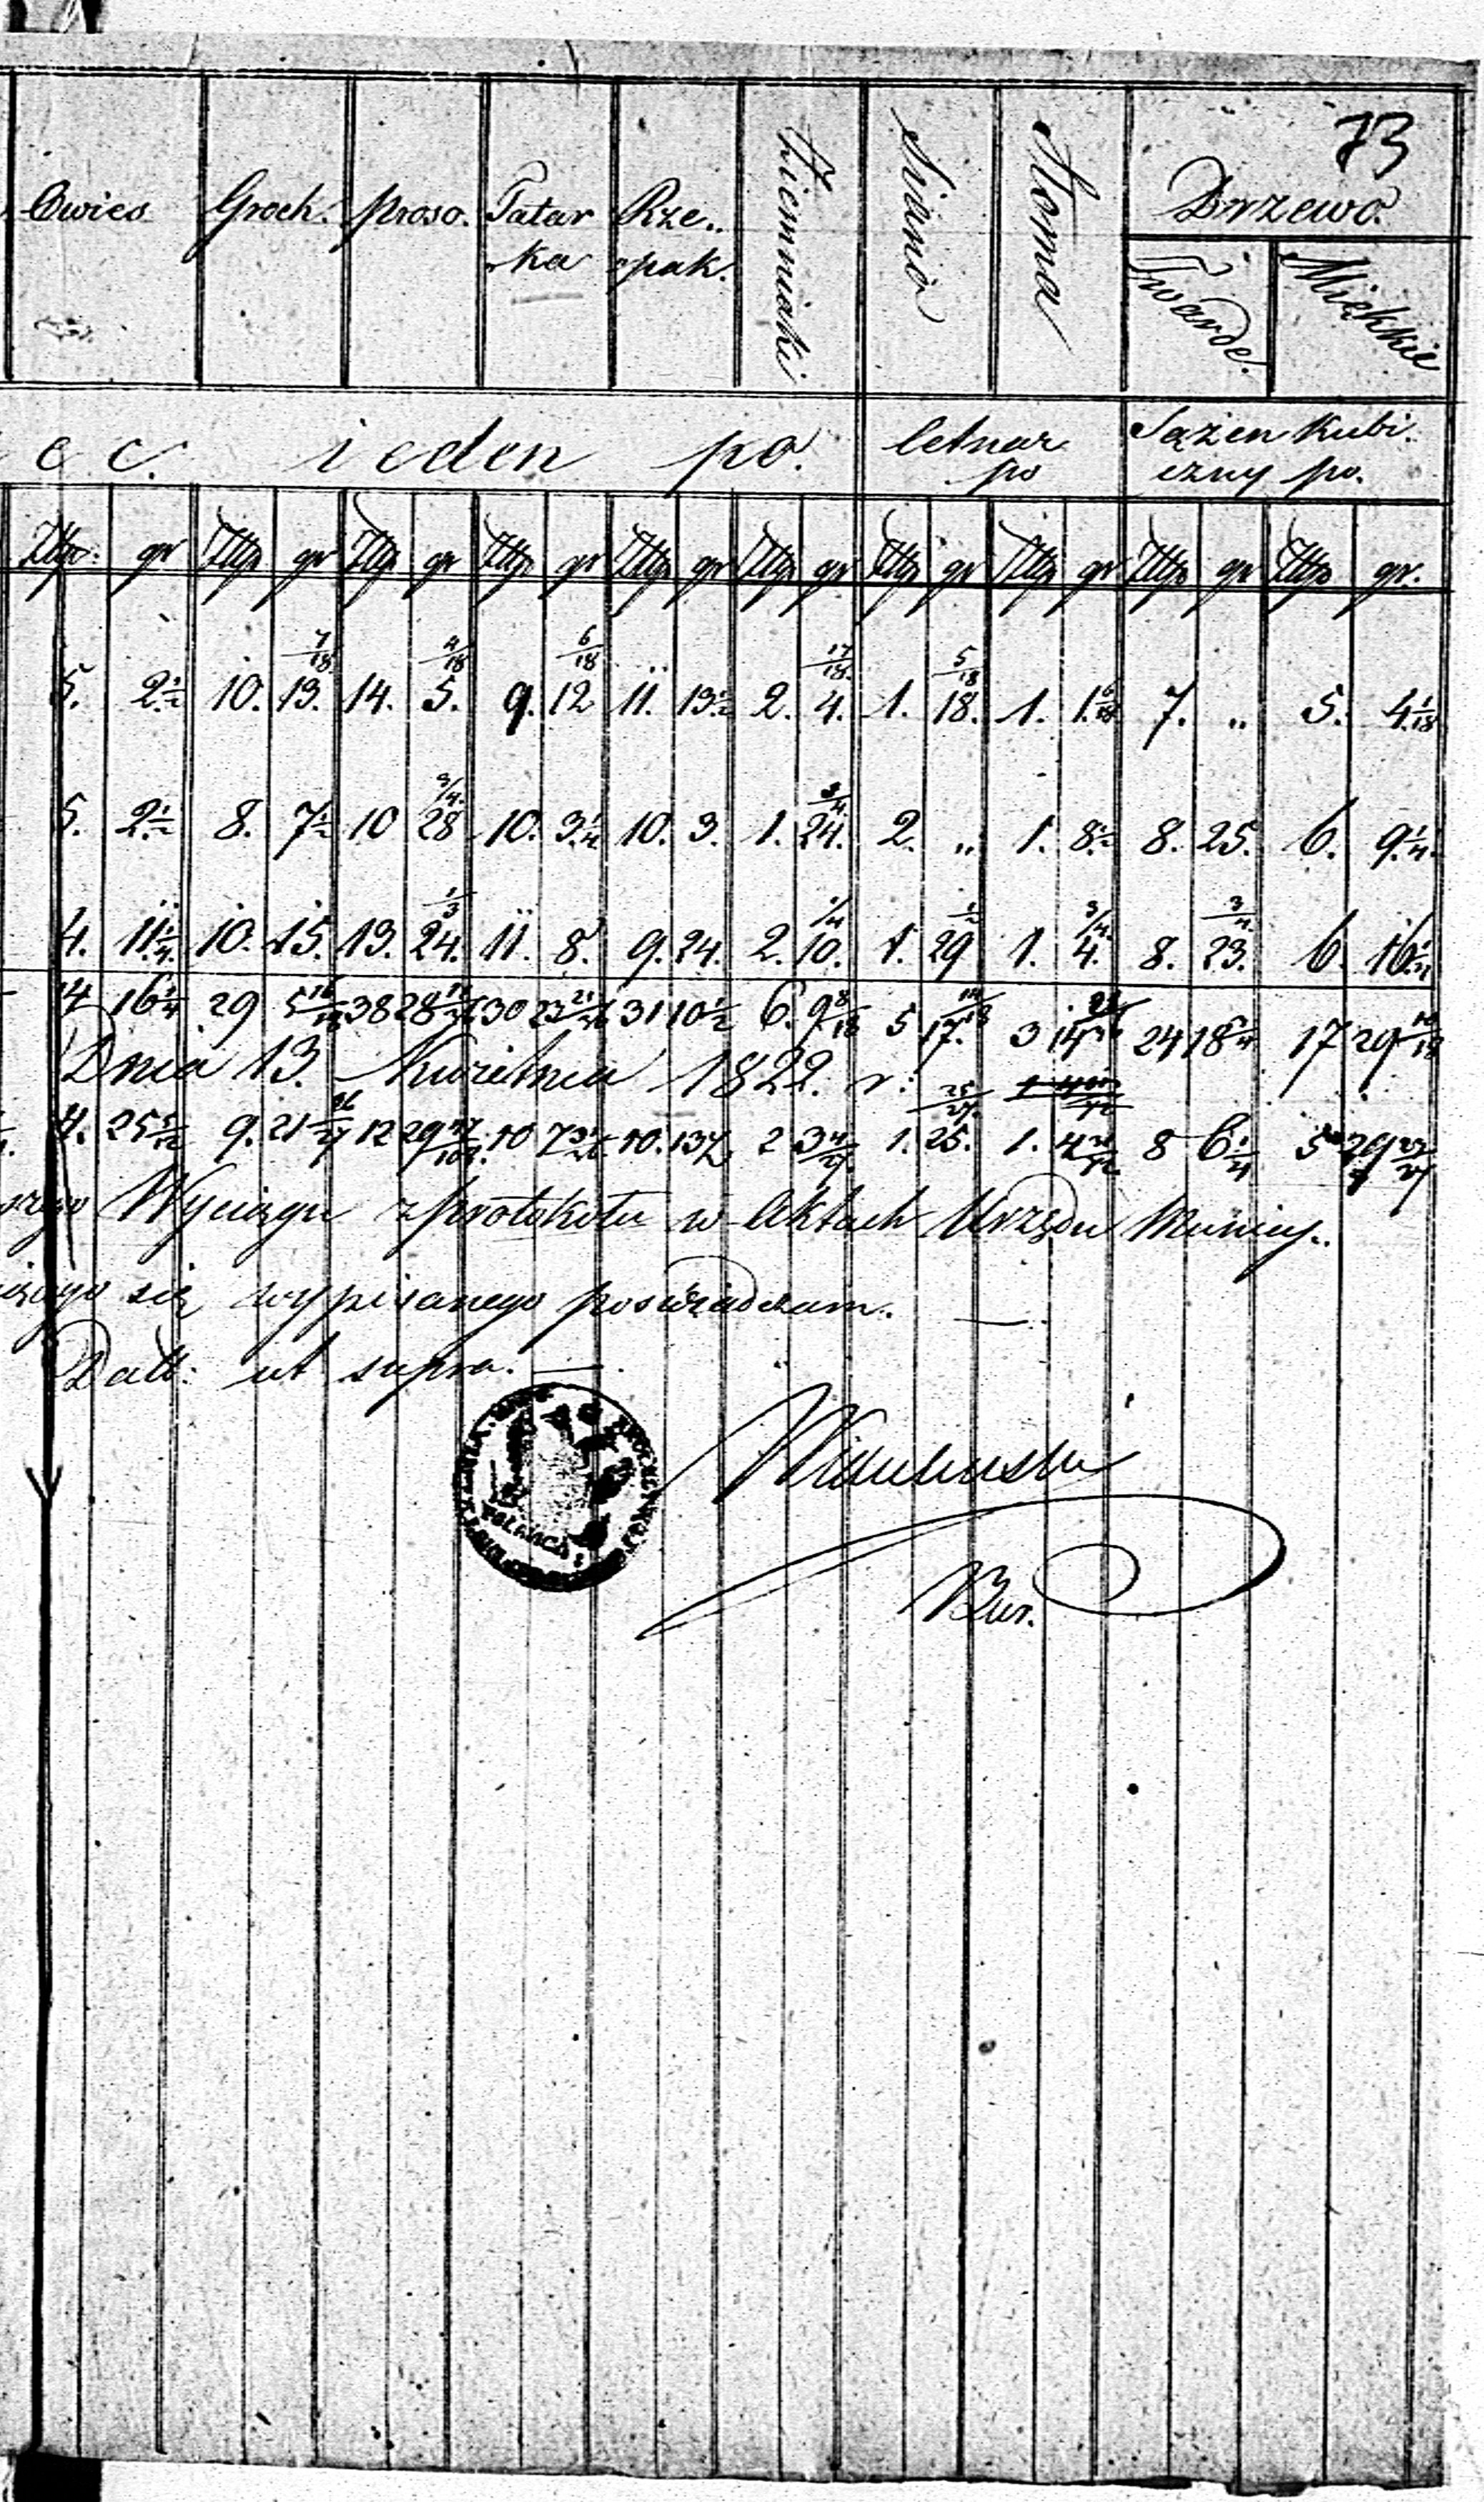 73
Owies Groch. Proso. Tatar Rze.. Ziemniaki Siano Słoma Drzewo.
ka pak. Twarde. Miękkie
e c. ieden po. Cetnar Sążen Kubi.
po czny po.
Złtp: gr Złtp gr Złtp gr Złtp gr Złtp gr Złtp gr Złtp gr Złtp gr Złtp gr Złtp gr.
5. 2 1/2 10. 13. 7/18 14. 5. 4/18 9. 12 6/18 11. 13 1/2 2. 4. 17/18 1. 18. 5/18 1. 1. 6/18 7. „ 5. 4 1/18
5. 2 1/2 8. 7 1/2 10 28 3/4 10. 3 1/4 10. 3. 1. 24. 3/4 2. „ 1. 8 1/2 8. 25. 6. 9 1/4
4. 11 1/4 10. 15. 13. 24. 1/3 11. 8. 9. 24. 2. 10. 1/4 1. 29 1/2 1. 4. 3/4 8. 23. 3/4 6. 16 1/4
14 16 1/4 29 5 16/18 38 28 30 23 31 10 1/2 6. 9 8/18 5 17. 14/18 3 14 24 18 3/4 17 29 10/18
Dnia 13. Kwietnia 1822. r:
4. 25 5/12 9. 21 26/27 12 29 10 7 10. 13 1/2 2 3 4/27 1. 25. 25/27 1. 4 8 6 1/4 5 29 23/27
Wyciągu z protokołu w Aktach Urzędu Municy..
się wypisanego poświadczam. —
Datt: ut supra. —
Bur.